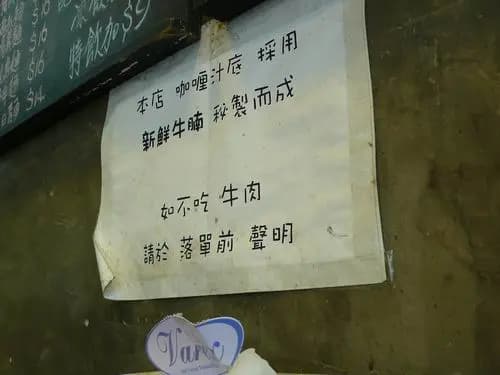 特飲加$9
$16
$16
$14
本店 咖喱汁底 採用
新鮮牛腩 秘製而成
如不吃 牛肉
請於 落單前 聲明